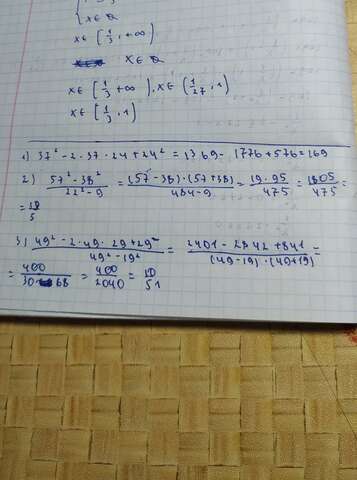 x ∈ ℝ
x ∈ [1/3, +∞)
x ∈ ℝ
x ∈ [1/3 +∞), x ∈ (1/27, 1)
x ∈ [1/3, 1)
1) 37² - 2 · 37 · 24 + 24² = 1369 - 1776 + 576 = 169
2) (57² - 38²)/(22² - 9) = ((57 - 38) · (57 + 38))/(484 - 9) = (19 · 95)/475 = 1805/475 =
= 19/5
3) (49² - 2 · 49 · 29 + 29²)/(49² - 19²) = (2401 - 2842 + 841)/((49 - 19) · (49 + 19)) =
= 400/(30 · 68) = 400/2040 = 10/51